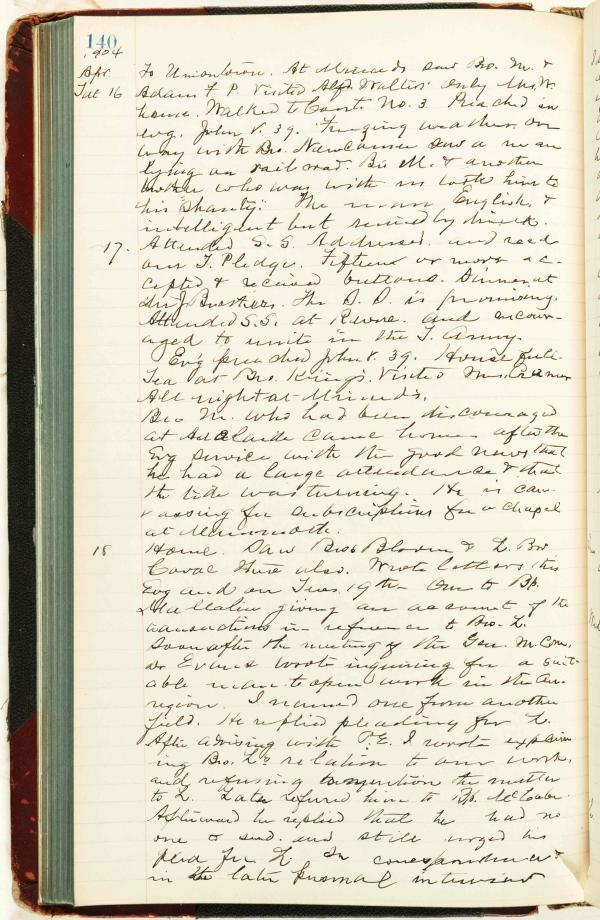 140
1904
Apr. To Uniontown. At Mrineds saw Bro. M. &
Sat 16 Adam F P. Visited Alfd. Walters only Mrs. W.
home. Walked to Cont. No. 3. Preached in
evg. John V. 39. Fringing weather. On
way with Bro. Newcomer saw a man
lying on railroad. Bro M. & another
brother who was with us took him to
his "shanty." The man English, &
intelligent but ruined by drink.
17. Attended S. S. Addressed and read
our T. Pledge. Fifteen or more ac-
cepted & received buttons. Dinner at
J. Brothers. The S. S. is promising.
Attended S.S. at Revere and encour-
aged to unite in the T. Army.
Ev'g preached John V. 39. House full.
Tea at Bro. King's. Visited Mrs. Cramer
All night at Mrineds.
Bro M. who had been discouraged
at Adelaide came home after the
Evg service with the good news that
he had a large attendance & that
the tide was turning. He is can-
vassing for subscriptions for a chapel
at
18 Home. Saw Bros Bloom & L. Bro
also. Wrote letters this
Evg and on Tues. 19th. One to Bp.
giving an account of the
transactions in reference to Bro. L.
Soon after the meeting of the Gen. M. Com.
Dr Evans wrote inquiring for a suit-
able man to open work in the An.
region. I named one from another
field. He replied pleading for L.
After advising with P.E. I wrote explain
ing Bro. L's relation to our work,
and refusing to mention the matter
to L. Later referred him to Bp. McCabe.
Afterward he replied that he had no
one to send and still urged his
plea for L. In correspondence &
in the later personal interview